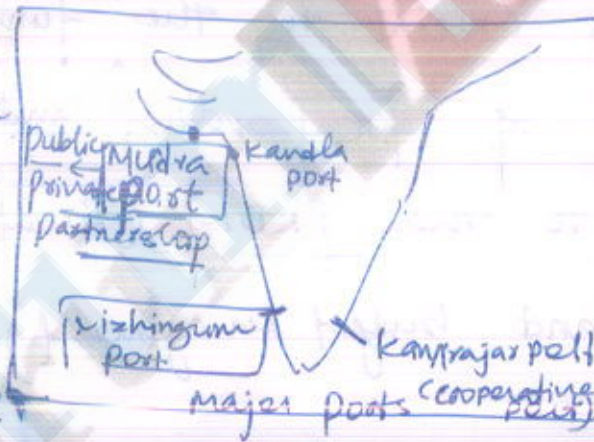 Public
Private
Partnership
Mudra
Port
Kandla
port
Vizhingum
Port
Kamrajar port
(cooperative
port)
Major Ports